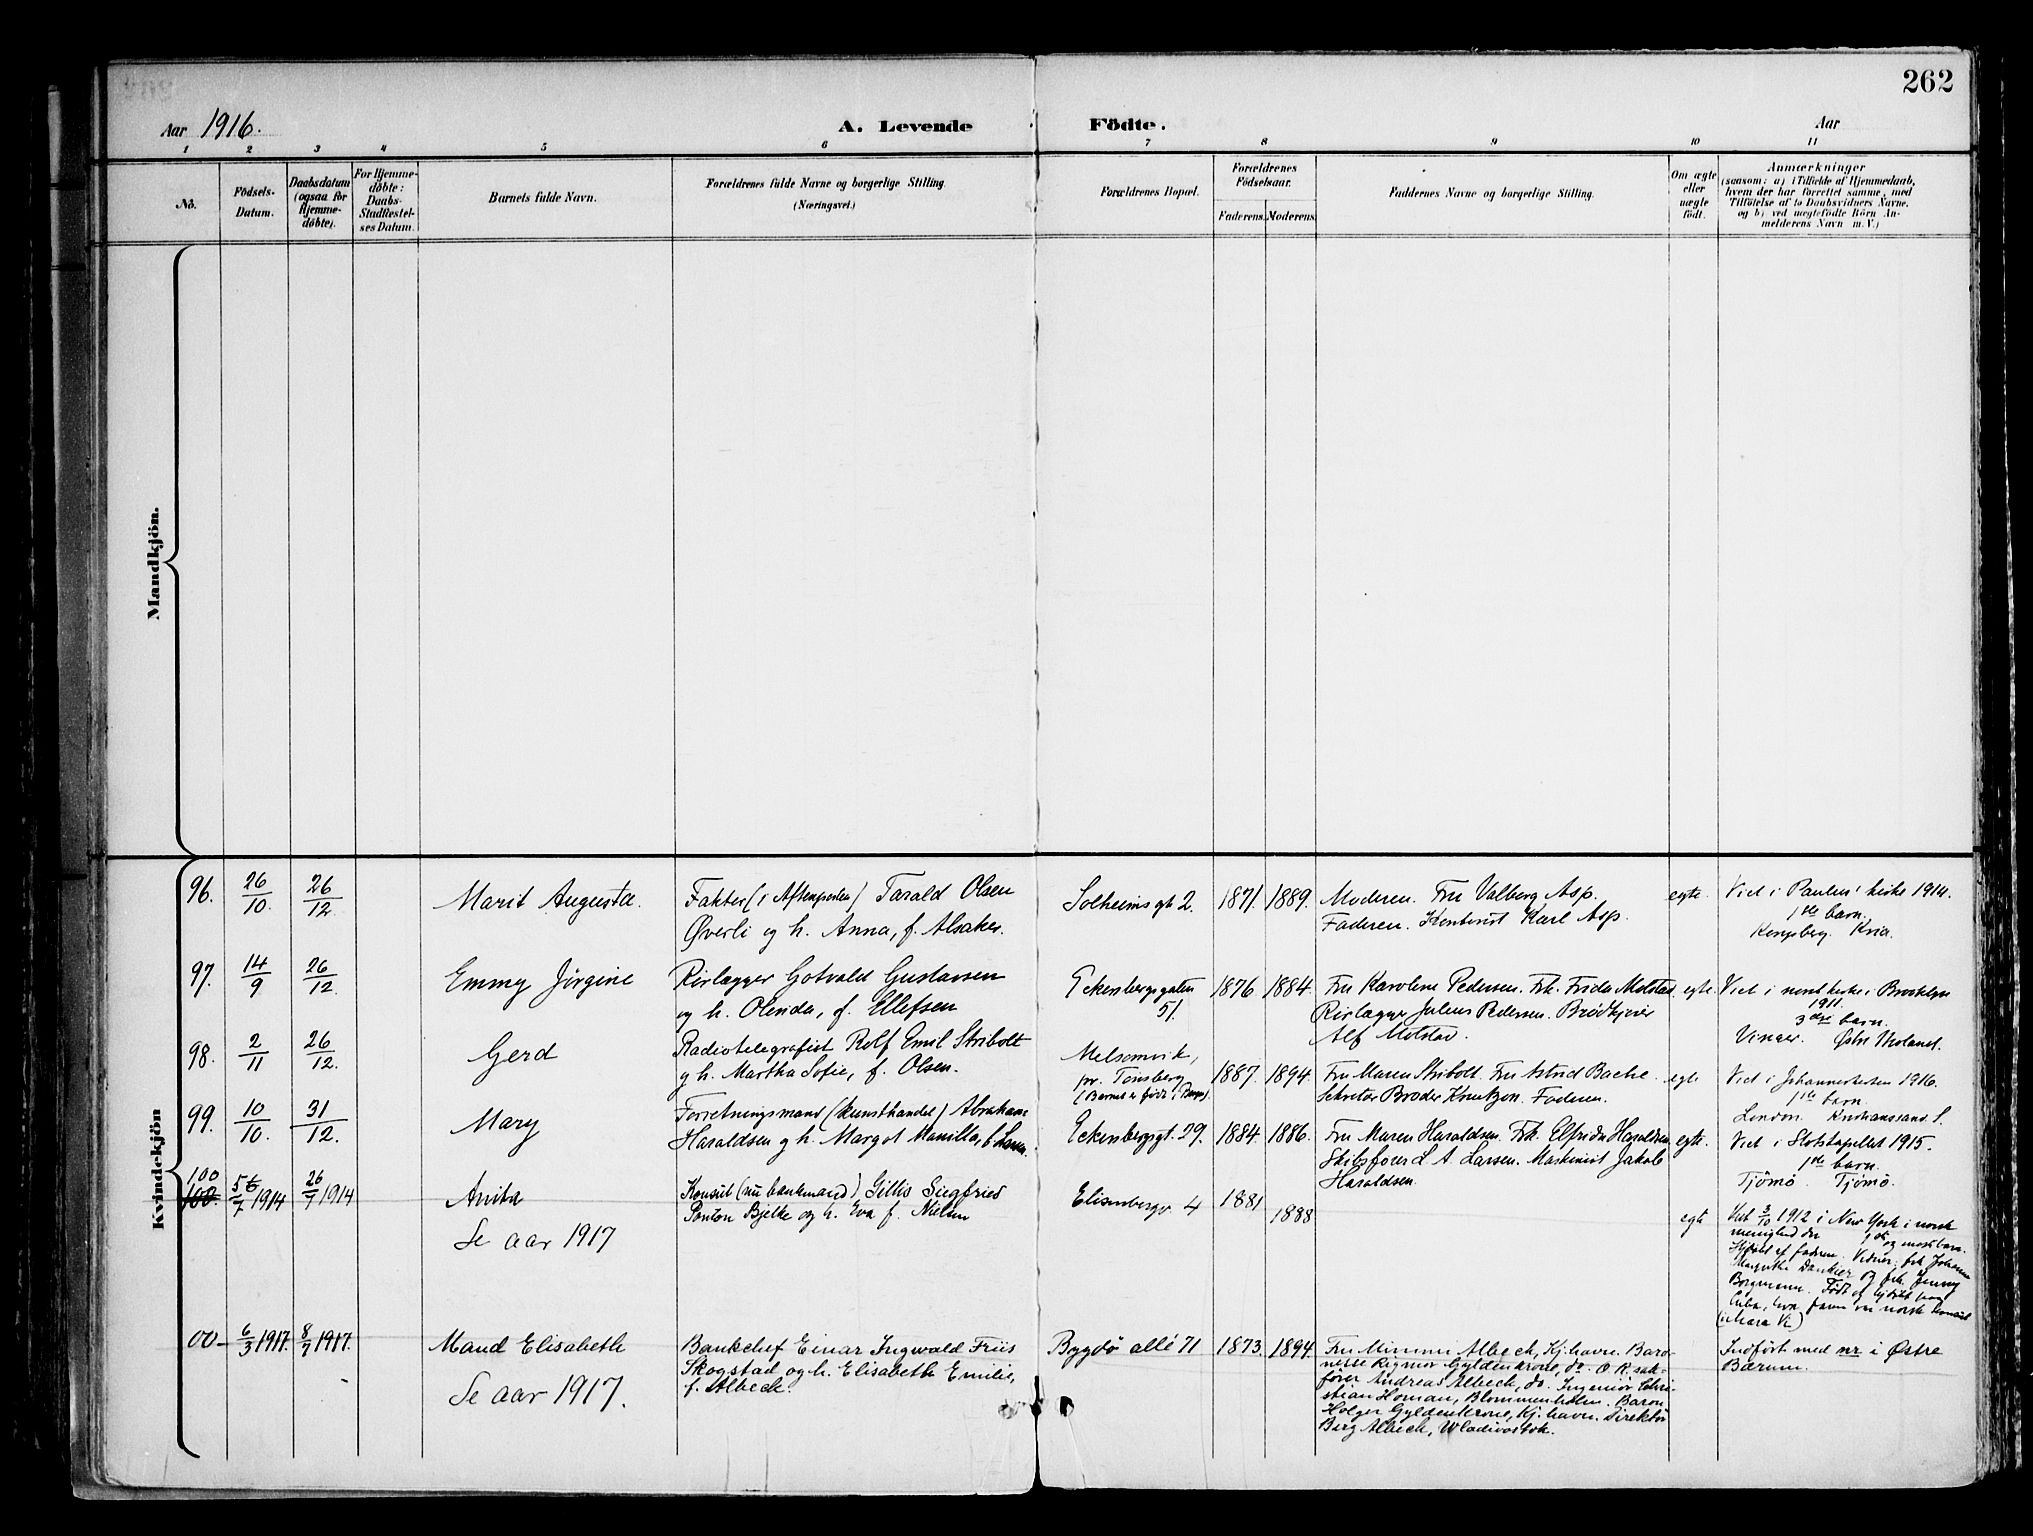 262
Aar 1916.
A. Levende Födte.
Aar
1 2 3 4 5 6 7 8 9 10 11
No.
Födsels-
Datum.
Daabsdatum
(ogsaa for
Hjemme-
døbte).
For Hjemme-
døbte:
Daabs-
Stadfæstel-
ses Datum.
Barnets fulde Navn.
Forældrenes fulde Navne og borgerlige Stilling.
(Næringsvei.)
Forældrenes Bopæl.
Forældrenes
Födselsaar.
Faderens. Moderens.
Faddernes Navne og borgerlige Stilling.
Om ægte
eller
uægte
født.
Anmærkninger
(saasom: a) i Tilfælde af Hjemmedaab,
hvem der har forrettet samme, med
Tilföielse af to Daabsvidners Navne,
og b) ved uægtefödte Börn An-
melderens Navn m. V.)
Mandkjön.
Kvindekjön
96.
26/10.
26/12.
Marit Augusta.
Faktor (i Aftenposten) Tarald Olsen
Øverli og h. Anna, f. Alsaker.
Solheimsgt 2.
1871.
1889.
Moderen. Fru Valborg Asp.
Faderen. Kontorist Karl Asp.
egte.
Viet i Paulus' kirke 1914.
1ste barn.
Kongsberg. Kria.
97.
14/9
26/12.
Emmy Jörgine
Rörlægger Gotvald Gustavsen
og h. Olenda, f. Ellefsen
Eckersbergsgaten
51.
1876
1884.
Fru Karoline Pedersen. Frk. Frida Molstad
Rörlægger Julius Pedersen. Brödkjører
Alf Molstad.
egte.
Viet i norsk kirke i Brooklyn
1911.
3dje barn.
Vinger. Østre Moland.
98.
2/11
26/12.
Gerd
Radiotelegrafist Rolf Emil Stribolt
g h. Martha Sofie, f. Olsen.
Melsomvik,
pr. Tønsberg
1887.
1894.
Fru Maren Stribolt. Fru Astrid Bache.
Sekretær Broder Knutzon. Faderen.
egte
Viet i Johanneskirken 1916.
1ste barn.
London. Kristianssand S.
99.
10/10.
31/12.
Mary
Forretningsmand (kunsthandel) Abraham
Haraldsen g h. Margot Manilla, f. Larsen.
Eckersbergsgt. 29.
1884.
1886.
Fru Maren Haraldsen. Frk. Elfrida Haraldsen
Skibsfører L. A. Larsen. Maskinist Jakob
Haraldsen.
egte.
Viet i Slotskapellet 1915.
1ste barn.
Tjömö. Tjömö.
100
100.
5/7 1914
26/7 1914
Anita
Se aar 1917
Konsul (nu bankmand) Gillis Siegfried
Ponton Bjelke og h. Eva f. Nielsen
Elisenbergv. 4
1881
1888
egte
Viet 3/10 1912 i New York i norsk
menighed der 1ste og
Hjdøbt af faderen. Vidner: frk Johanne
Margrethe Dankier og frk. Jenny
Borgmann. Født og hjdøbt paa
Cuba, hvor faren var norsk konsul
00-
6/3 1917.
8/7 1917.
Maud Elisabeth
Se aar 1917.
Bankchef Einar Ingwald Friis
Skogstad og h. Elisabeth Emilie,
f. Albeck.
Bygdö allé 71
1873.
1894.
Fru Mimmi Albeck, Kj.havn. Baro-
nesse Rigmor Gyldenkrone, do. O. R. sak-
förer Andreas Albeck, do. Ingeniör Chri-
stian Homan, Blommenholm. Baron
Holger Gyldenkrone, Kj.havn. Direktör
Birg Albeck, Wladivostok.
Indfört med nr i Østre
Bærum.